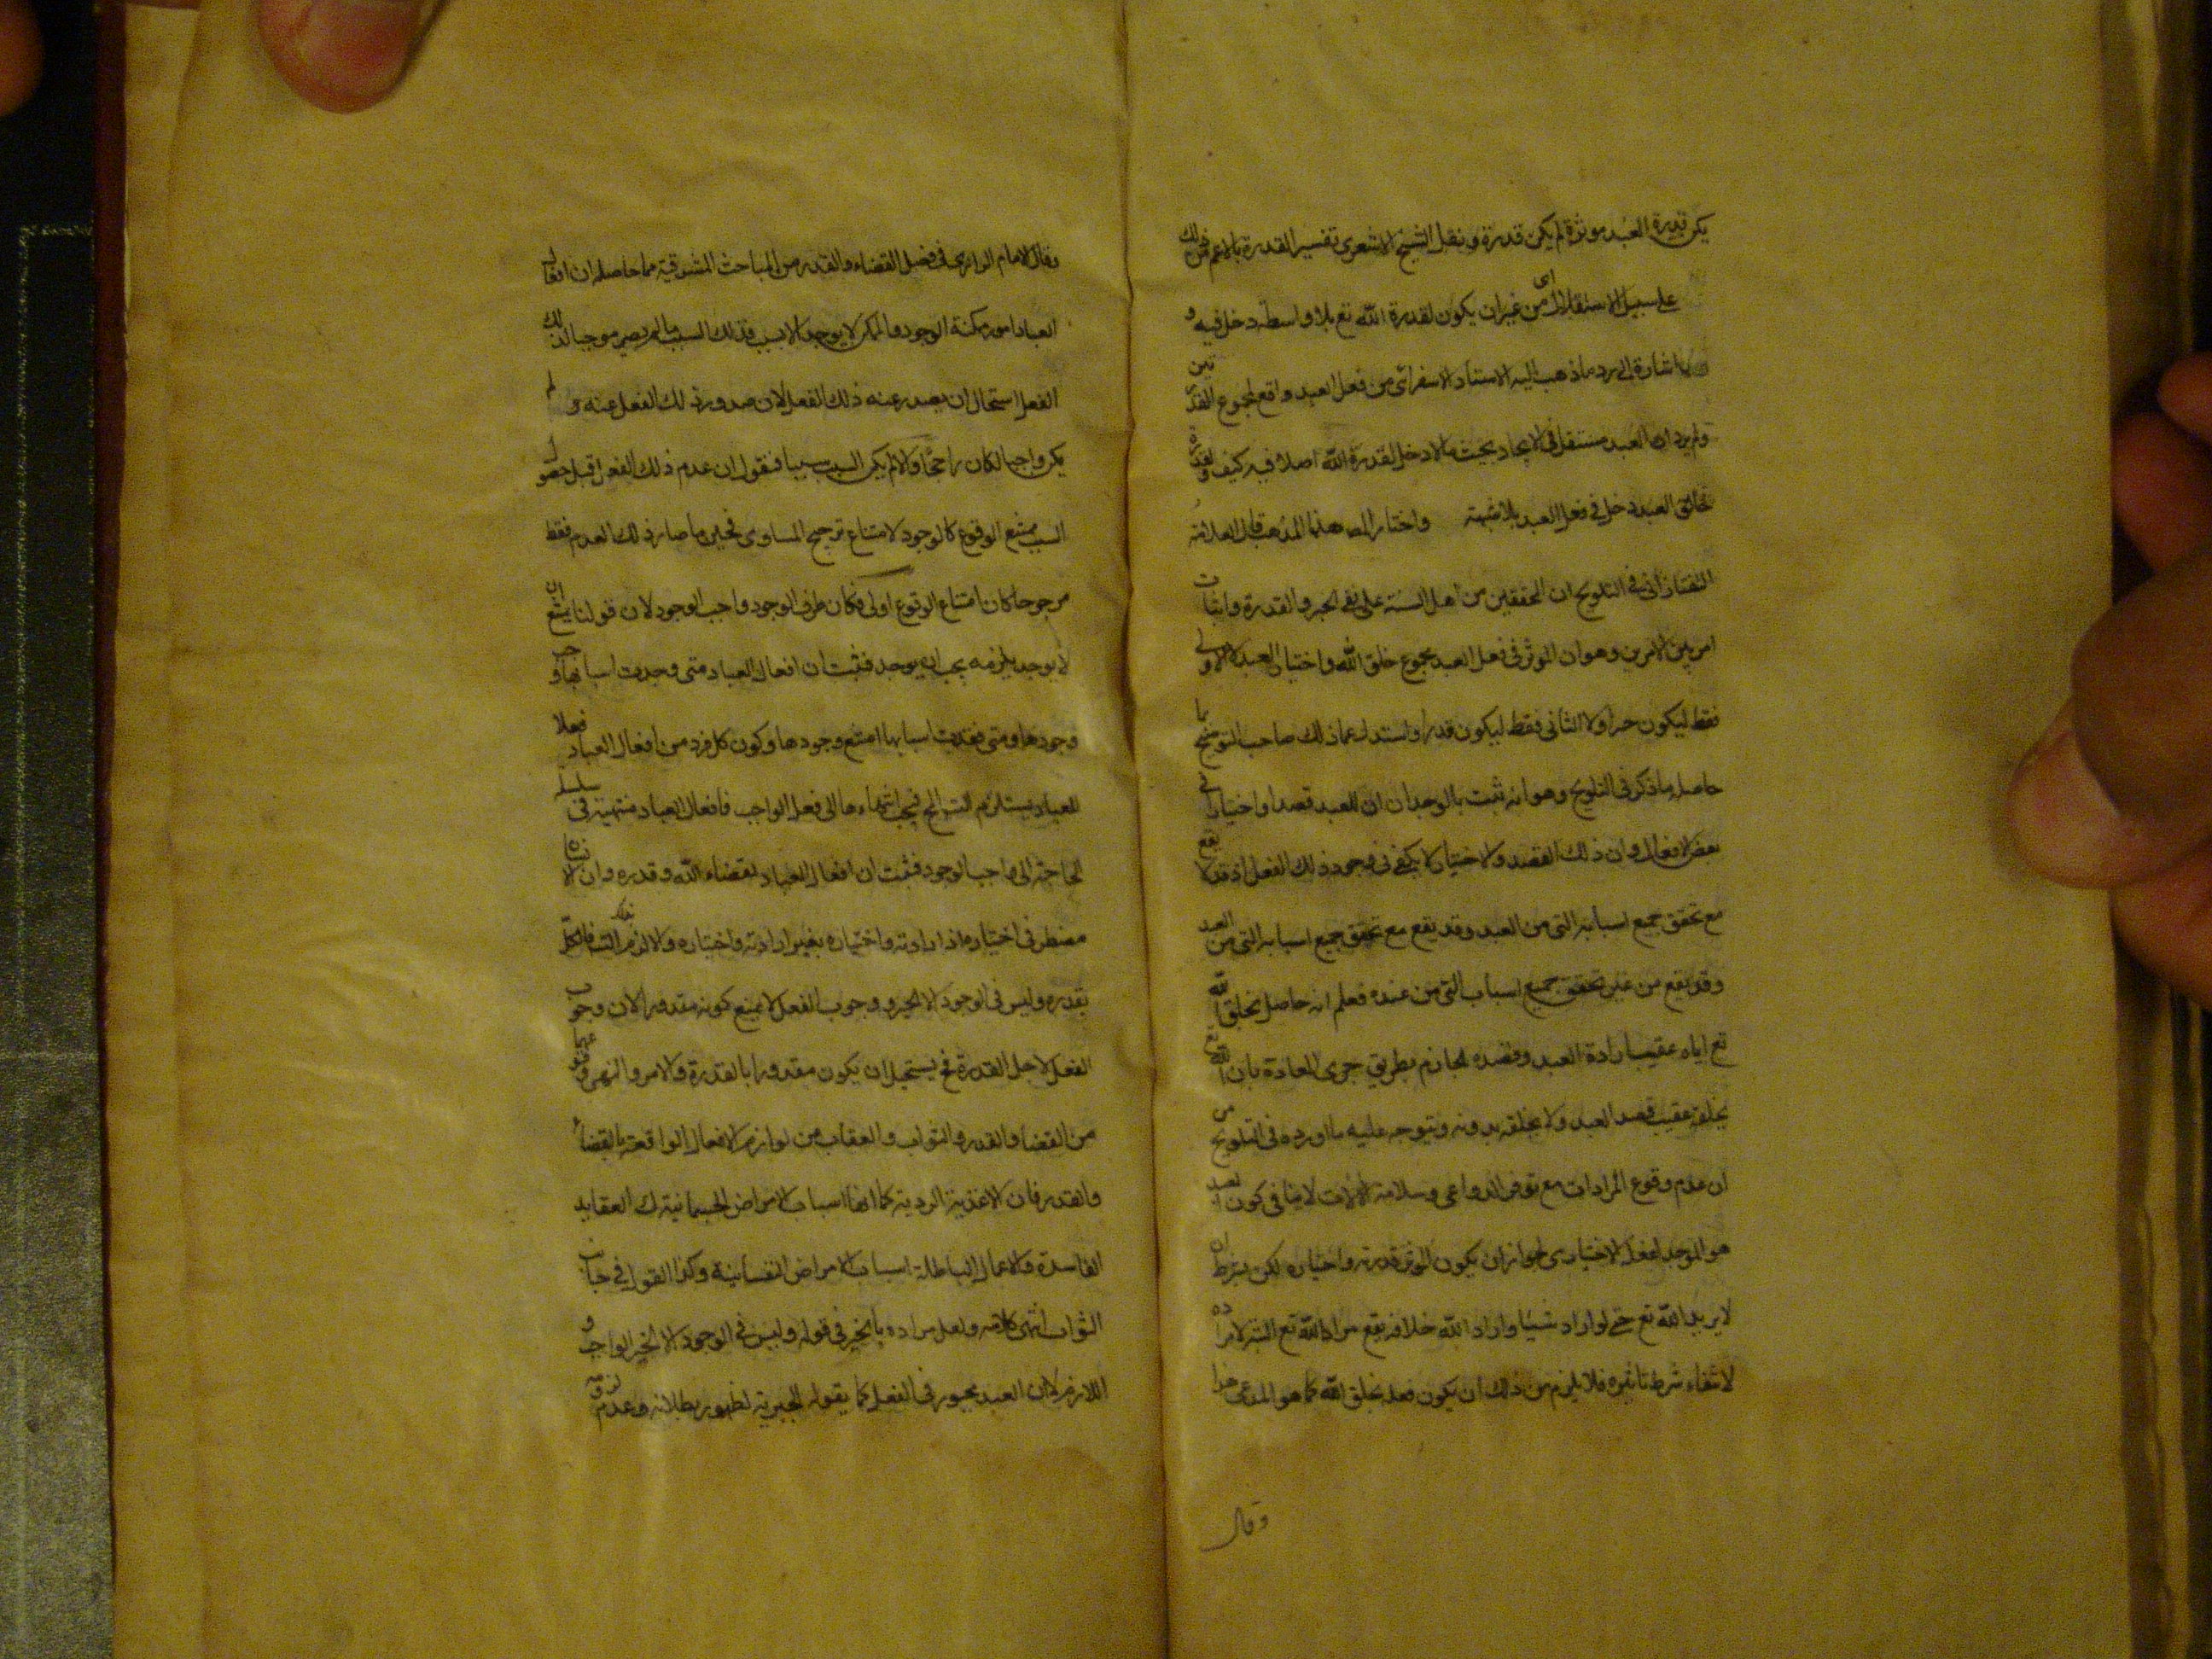 يكن قدرة العبد موثرة لم يكن قدرة ونقل الشيخ الاشعرى تفسير القدرة بالاعم من ذلك
على سبيل الاستقلال اى من غير ان يكون لقدرة الله تع بلا واسطة دخل فيه و
اشارة الى رد ما ذهب اليه الاستاد الاسفرائى من فعل العبد واقع بمجموع القدرتين
ولم يرد ان العبد مستقل فى الايجاد بحيث لا دخل لقدرة الله اصلا فيه كيف ولقدرة
خالق العبد دخل فى فعل العبد بلا شبهة واختار المص هذا المذهب قال العلامة
التفتازانى فى التلويح ان المحققين من اهل السنة على نفى الجبر والقدرة واثبات
امر بين الامرين وهو ان الموثر فى فعل العبد مجموع خلق الله واختيار العبد لا الاولى
فقط ليكون جبرا ولا الثانى فقط ليكون قدرا واستدل على ذلك صاحب التوضيح بما
حاصله ما ذكر فى التلويح وهو انه ثبت بالوجدان ان للعبد قصدا واختيارا فى
بعض الافعال وان ذلك القصد والاختيار لا يكفى فى وجود ذلك الفعل اذ قد لا يقع
مع تحقق جميع اسبابه التى من العبد وقد يقع مع تحقق جميع اسبابه التى من العبد
وقد يقع من غير تحقق جميع اسباب التى من عنده فعلم انه حاصل بخلق الله
تع اياه عقيب ارادة العبد وقصده الجازم بطريق جرى العادة بان الله تع
يخلقه عقيب قصد العبد ولا يخلقه بدونه ويتوجه عليه ما اورده فى التلويح من
ان عدم وقوع المرادات مع توفر الدواعى وسلامة الآلات لا ينافى كون العبد
هو الموجد لفعله الاختيارى لجواز ان يكون الموثر قدرته واختياره لكن بشرط ان
لا يريد الله تع حتى لو اراد شيئا واراد الله خلافه يقع مراد الله تع البتة لا مراده
لانتفاء شرط تاثيره فلا يلزم من ذلك ان يكون فعله بخلق الله كما هو المدعى هذا
وقال
وقال الامام الرازى فى فصل القضاء والقدر من المباحث المشرقية مما حاصله ان افعال
العباد امور ممكنة الوجود والممكن لا يوجد الا بسبب وذلك السبب ما لم يصر موجبا لذلك
الفعل استحال ان يصدر عنه ذلك الفعل لان صدور ذلك الفعل عنه و لم
يكن واجبا لكان راجحا والا لم يكن السبب سببا فنقول ان عدم ذلك الفعل قبل حصول
السبب ممتنع الوقوع كالوجود لامتناع ترجيح المساوى فحين ما صار ذلك العدم فقط
مرجوحا كان امتناع الوقوع اولى فكان طرف الوجود واجب الوجود لان قولنا يمتنع ان
لا يوجد يلزمه يجب ان يوجد فثبت ان افعال العباد متى وجدت اسبابها وجب
وجودها ومتى فقدت اسبابها امتنع وجودها وكون كل فرد من افعال العباد فعلا
للعباد يستلزم التسلسل فيجب انتهاءها الى فعل الواجب فافعال العباد منتهية فى سلسلة
الحاجة الى واجب الوجود فثبت ان افعال العباد بقضاء الله وقدره وان الانسان
مضطر فى اختياره اذ ارادته واختياره بغير ارادته واختياره والا لزم التس فالكل
بقدره وليس فى الوجود الا الخير ووجوب الفعل لا يمنع كونه مقدورا لان وجوب
الفعل لاجل القدرة فح يستحيل ان يكون مقدورا بالقدرة والامر والنهى وقوعهما
من القضا والقدر والثواب والعقاب من لوازم الافعال الواقعة بالقضاء
والقدر فان الاغذية الردية كما انها اسباب الامراض الجسمانية كذلك العقايد
الفاسدة والاعمال الباطلة اسباب الامراض النفسانية وكذا القول فى جانب
الثواب انتهى كلامه ولعل مراده بالخير فى قوله وليس فى الوجود الا الخير الواجب و
اللازم لا ان العبد مجبور فى الفعل كما يقوله الجبرية لظهور بطلانه وعدم لزومه